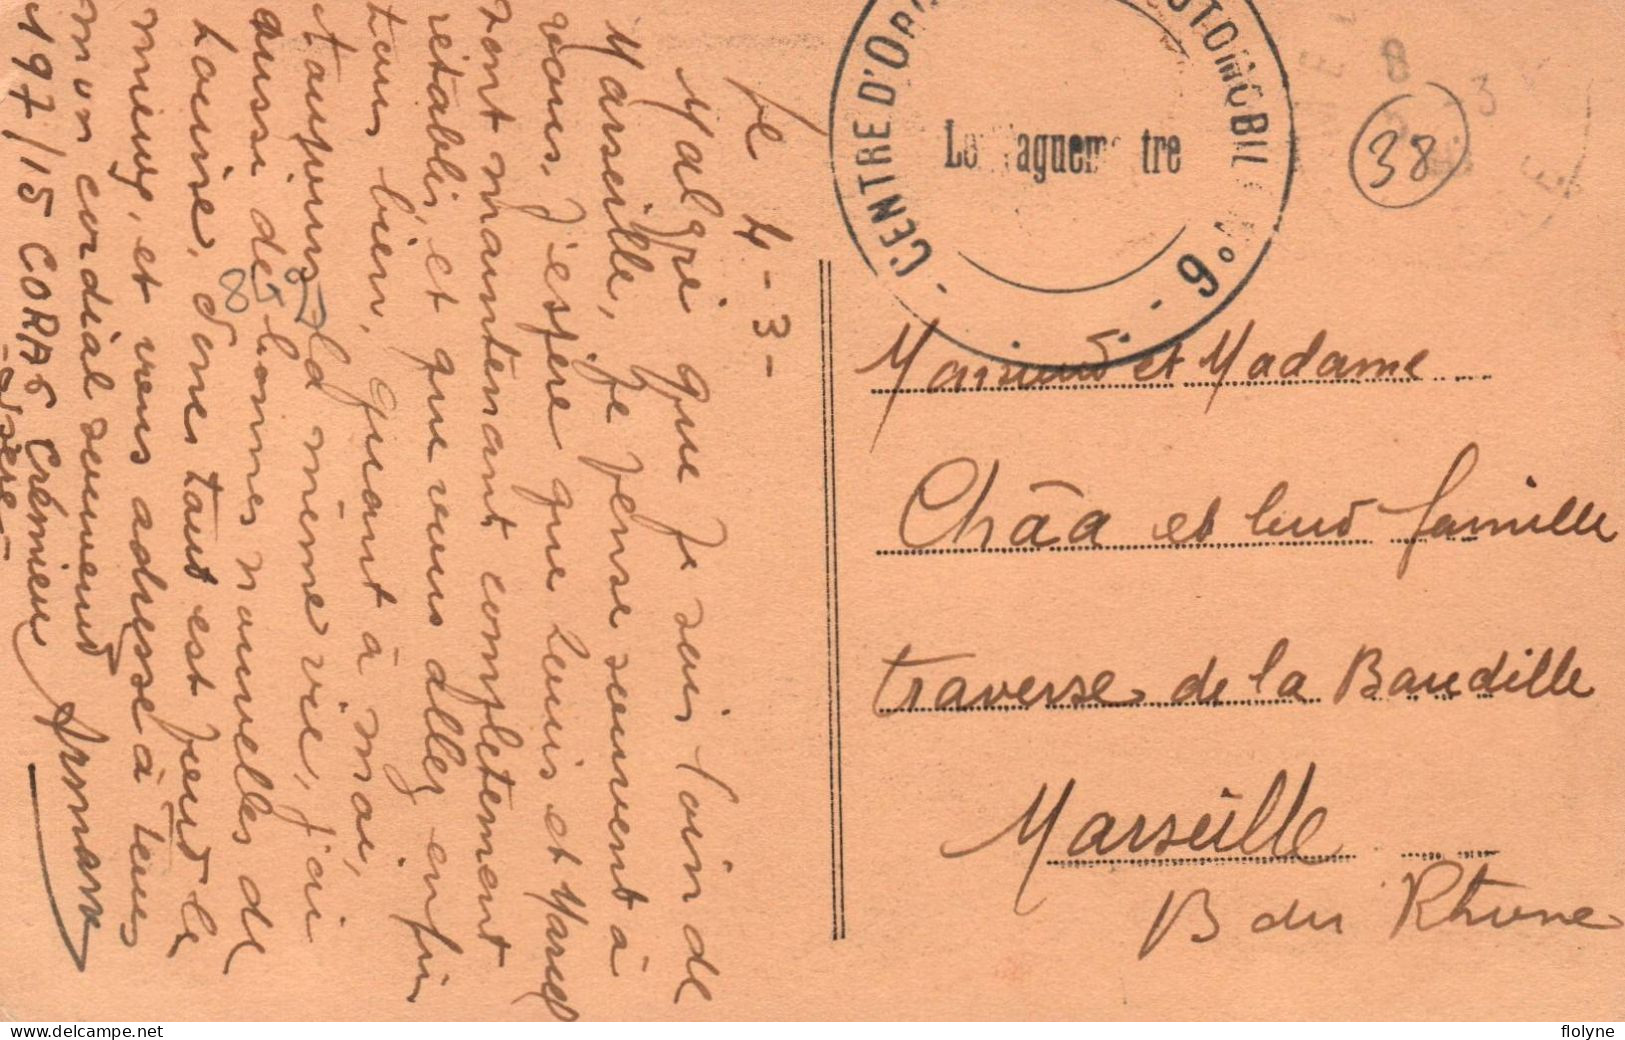 Le 4-3-
Malgré que je suis loin de
Marseille, je pense souvent à
vous, j'espère que Louis et Marcel
sont maintenant complètement
rétablis, et que vous allez enfin
tous bien, quant à moi,
toujours la même vie, j'ai
aussi de bonnes nouvelles de
Louise, donc tout est pour le
mieux, et vous adresse à tous
mon cordial souvenir
Armand
197/15 CORA6 Crémieu
Isère
CENTRE D'OR
UTOMOBIL
N° 9
Le Vaguemestre
38
Monsieur et Madame
Châa et leur famille
traverse de la Baudille
Marseille
B du Rhone
flolyne
www.delcampe.net